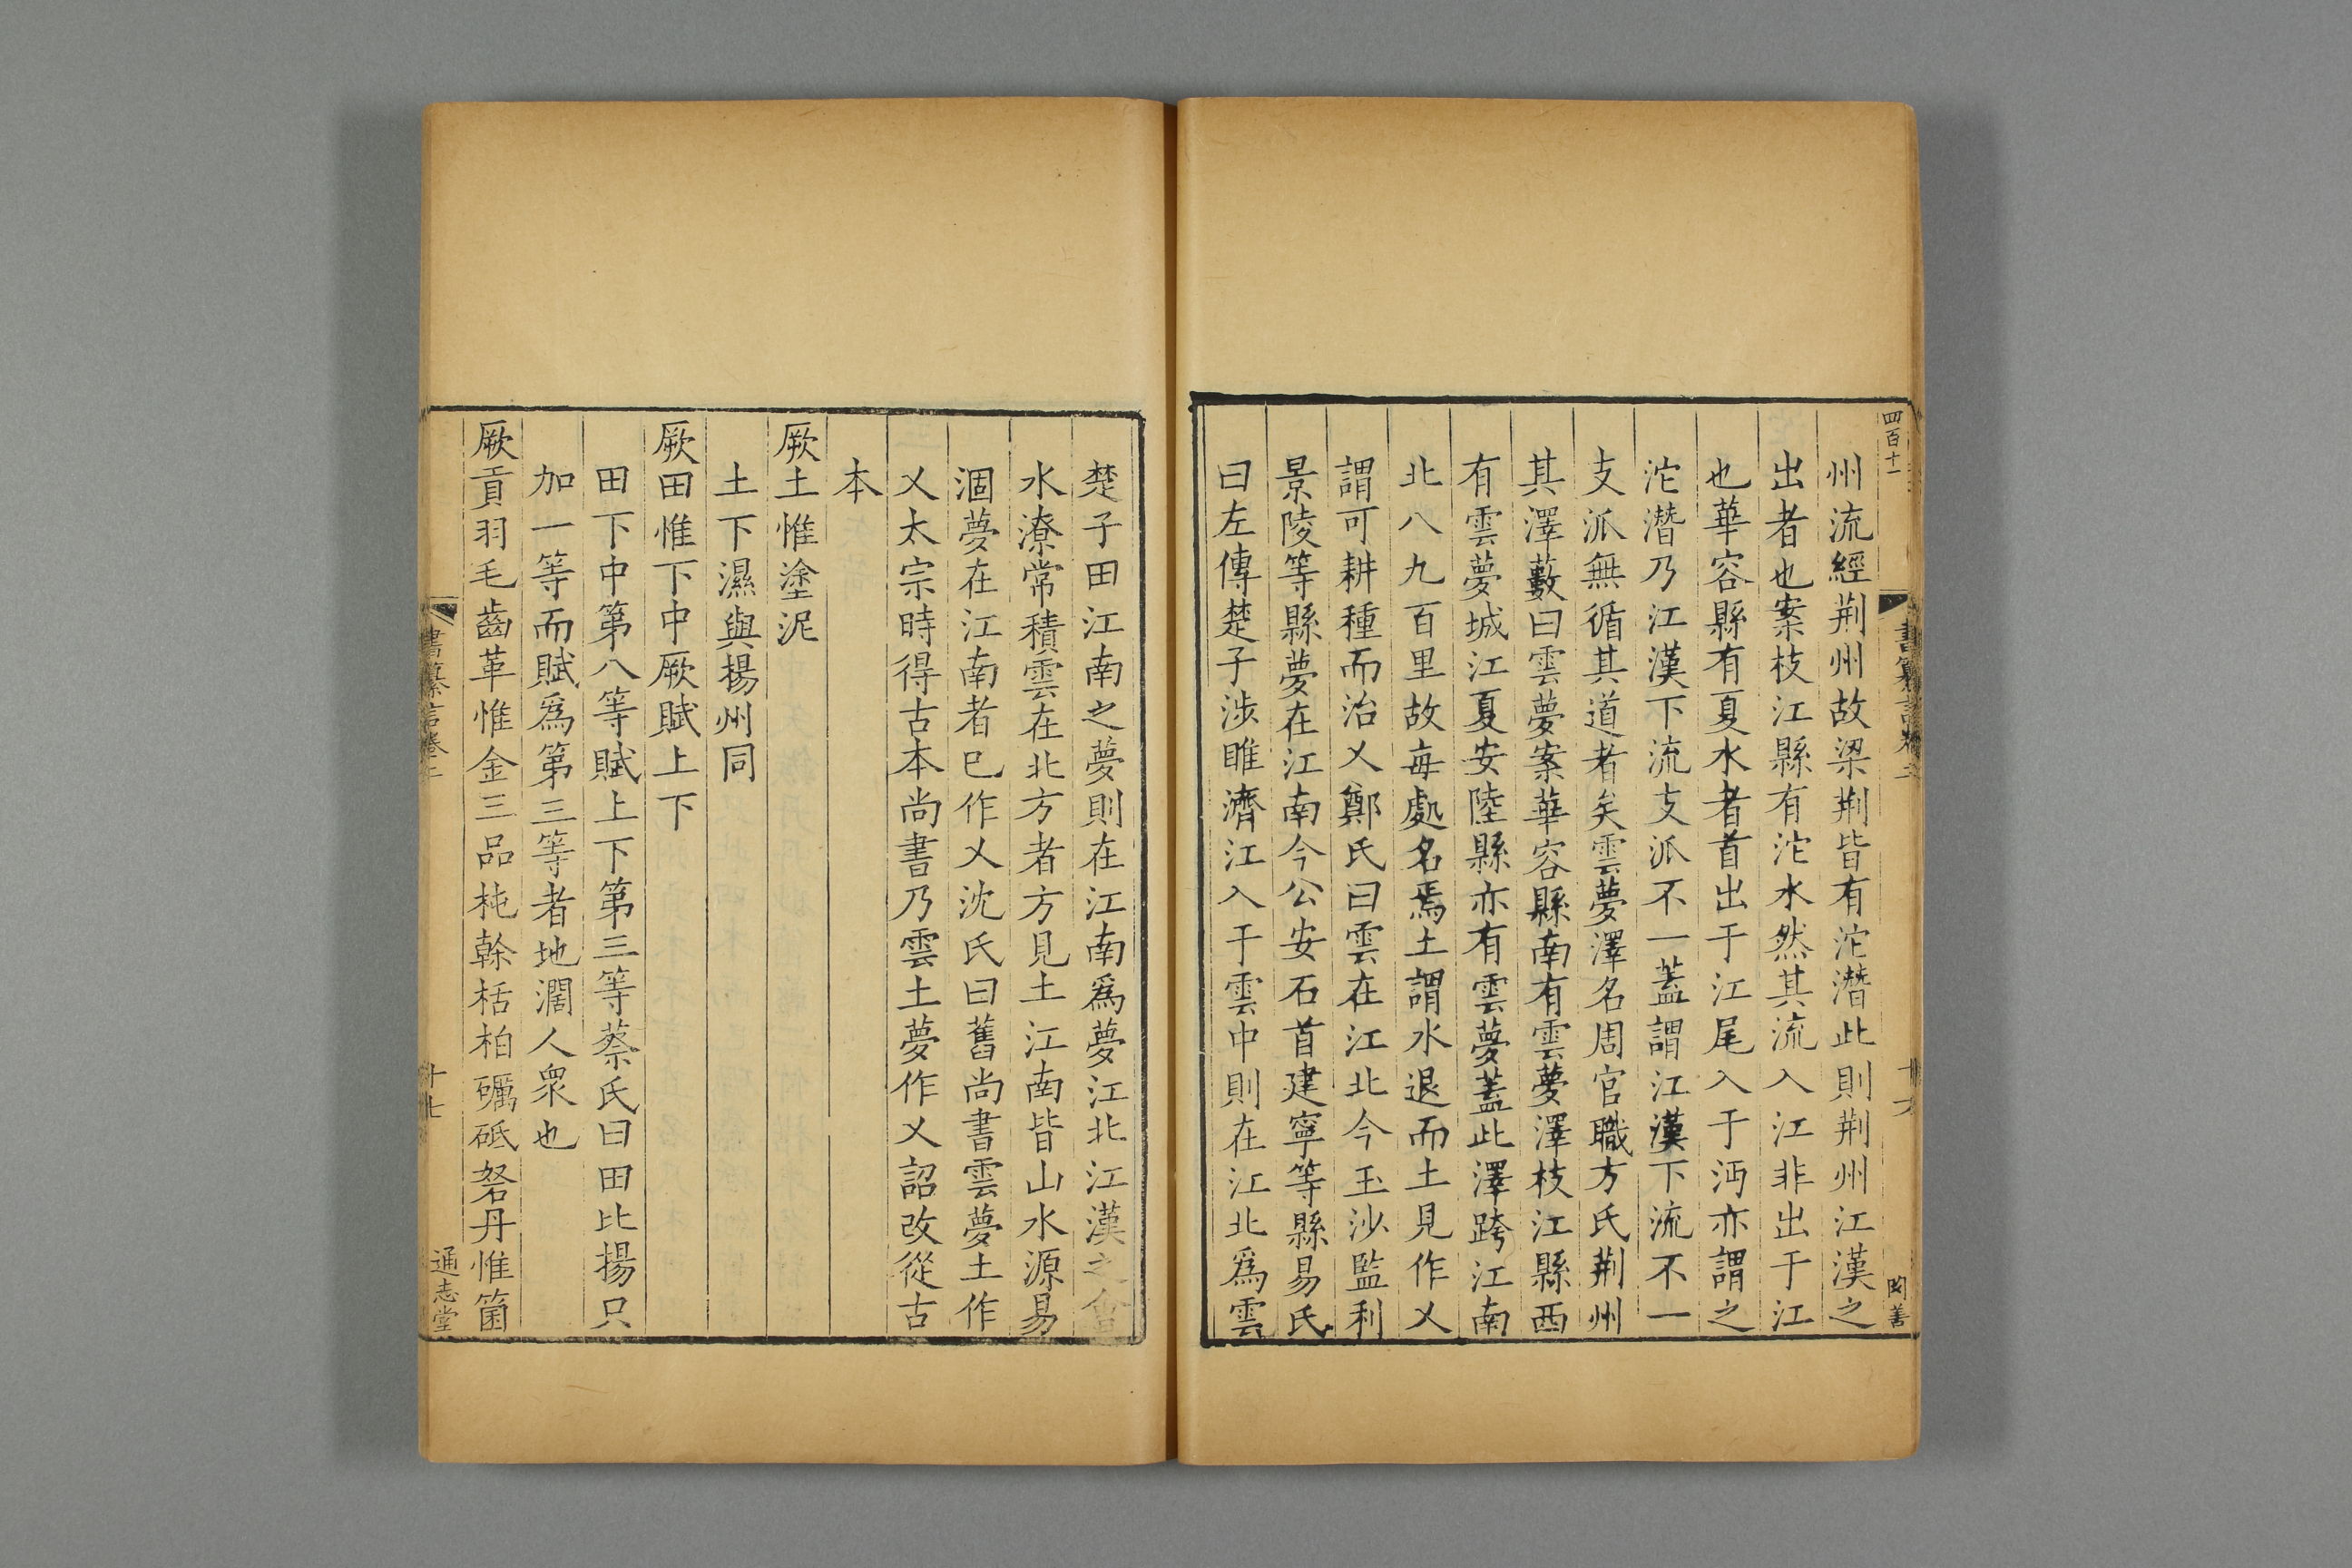 四百十一
州流經荆州故梁荆皆有沱潛此則荆州江漢之
出者也案枝江縣有沱水然其流入江非出于江
也華容縣有夏水者首出于江尾入于沔亦謂之
沱潛乃江漢下流支派不一蓋謂江漢下流不一
支派無循其道者矣雲夢澤名周官職方氏荆州
其澤藪曰雲夢案華容縣南有雲夢澤枝江縣西
有雲夢城江夏安陸縣亦有雲夢蓋此澤跨江南
北八九百里故每處名焉土謂水退而土見作乂
謂可耕種而治乂鄭氏曰雲在江北今玉沙監利
景陵等縣夢在江南今公安石首建寧等縣易氏
曰左傳楚子涉睢濟江入于雲中則在江北爲雲
楚子田江南之夢則在江南爲夢江北江漢之會
水潦常積雲在北方者方見土江南皆山水源易
涸夢在江南者已作乂沈氏曰舊尚書雲夢土作
乂太宗時得古本尚書乃雲土夢作乂詔改從古
本
厥土惟塗泥
土下濕與揚州同
厥田惟下中厥賦上下
田下中第八等賦上下第三等蔡氏曰田比揚只
加一等而賦爲第三等者地濶人衆也
厥貢羽毛齒革惟金三品杶榦栝柏礪砥砮丹惟箘
書纂言卷二
十七
通志堂